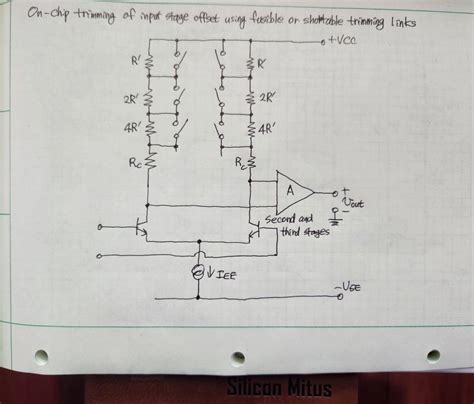 On-chip trimming of input stage offset using fusible or shortable trimming links
+VCC
R' R'
2R' 2R'
4R' 4R'
Rc Rc
A
+
Vout
-
Second and
third stages
↓ IEE
-VEE
Silicon Mitus